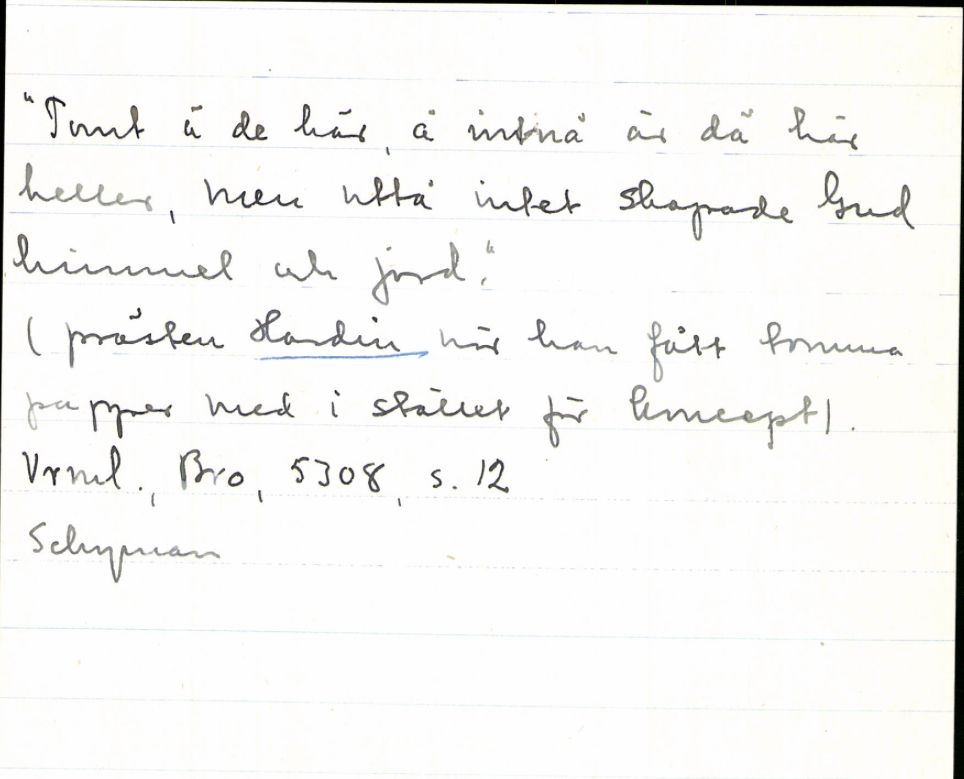 "Tomt ä de här, å intnå är då här
heller, men uttå intet skapade Gud
himmel och jord."
(prästen Hardin når han fått tomma
papper med i stället för koncept).
Vrml., Bro, 5308, s. 12
Schyman